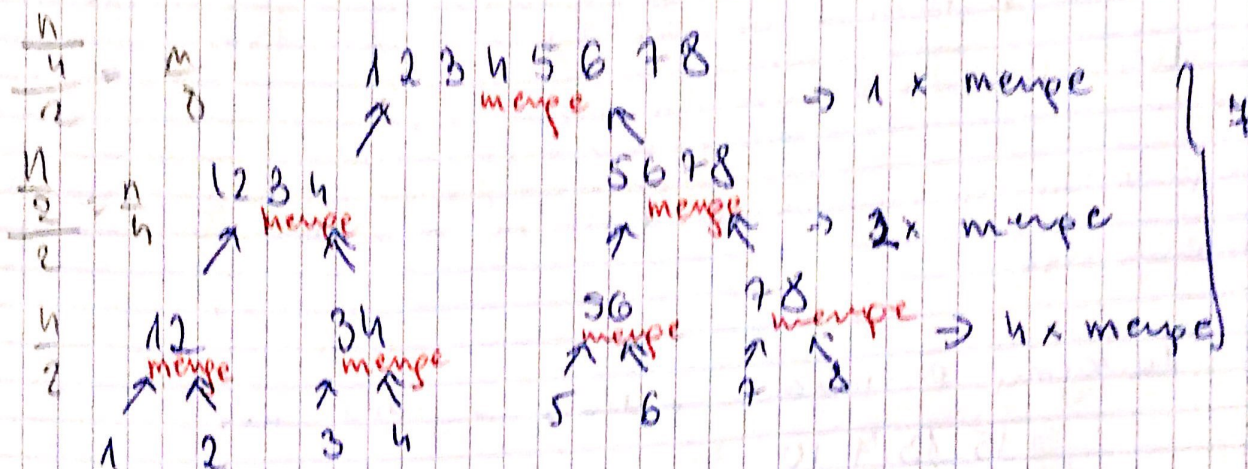 n/4/2 = n/8 1 2 3 4 5 6 7 8 → 1 x merge
merge
n/2/2 = n/4 1 2 3 4 5 6 7 8 → 2 x merge
merge merge
n/2 12 34 56 78 → 4 x merge
merge merge merge merge
1 2 3 4 5 6 7 8